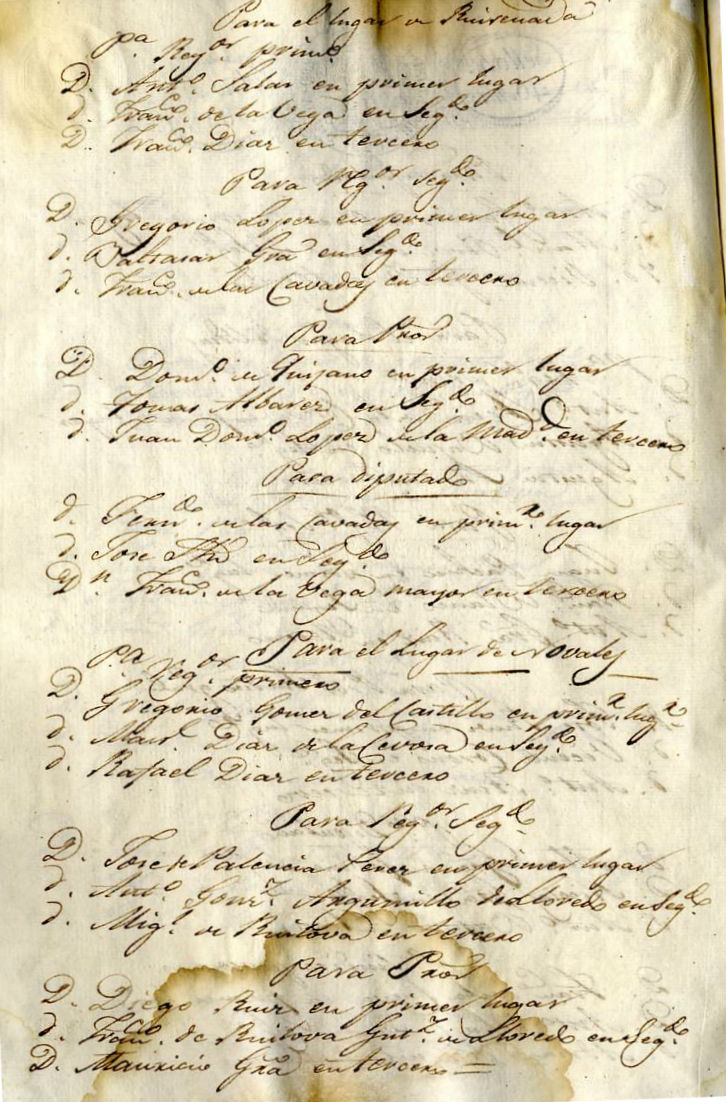 Para el lugar de Ruisenada
pa. Regor. primo
D. Anto. Salas en primer lugar
d. Franco. de la Vega en Segdo.
D. Franco. Diaz en tercero
Para Rgor. Segdo.
D. Gregorio Lopez en primer lugar
d. Baltasar Gra. en Segdo.
d. Franco. de las Cavadas en tercero
Para Pror
D. Domo. de Quijano en primer lugar
d. Tomas Albarez en Segdo.
d. Juan Domo. Lopez de la Madd. en tercero
Para diputado
d. Ferndo. de las Cavadas en primr. lugar
d. Jose en Segdo.
Dn. Franco. de la Vega mayor en tercero
Para el Lugar de Novales
pa. Regor. primero
D. Gregorio Gomez del Castillo en primr. lugr.
d. Manl. Diaz de la Cevosa en Segdo.
d. Rafael Diaz en tercero
Para Regor. Segdo.
D. Jose de Palencia Perez en primer lugar
d. Anto. Gonz. Argumillo de Lloredo en Segdo.
d. Migl. de Ruilova en tercero
Para Pror
D. Diego Ruiz en primer lugar
d. Franco. de Ruilova Gutz. de Lloredo en Segdo.
D. Mauricio Gra. en tercero =